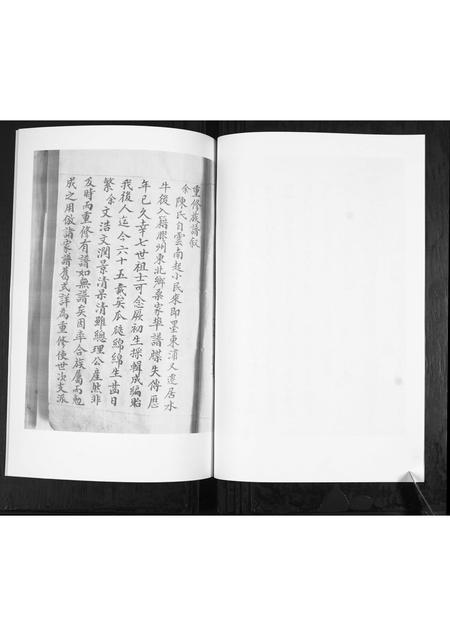 重修族譜叙
余陳氏自雲南趙小民來即墨東浦又遷居水
牛後入籍膠州東北鄉桑家埠譜牒失傳歷
年已久幸七世祖士可念厥初生採輯成編貽
我後人迄今六十五載矣瓜瓞綿綿生齒日
繁余文浩文潤景清杲清雖總理公產然非
及時而重修有譜如無譜矣因率合族屬而勉
成之用倣諸家譜舊式詳為重修使世次支派